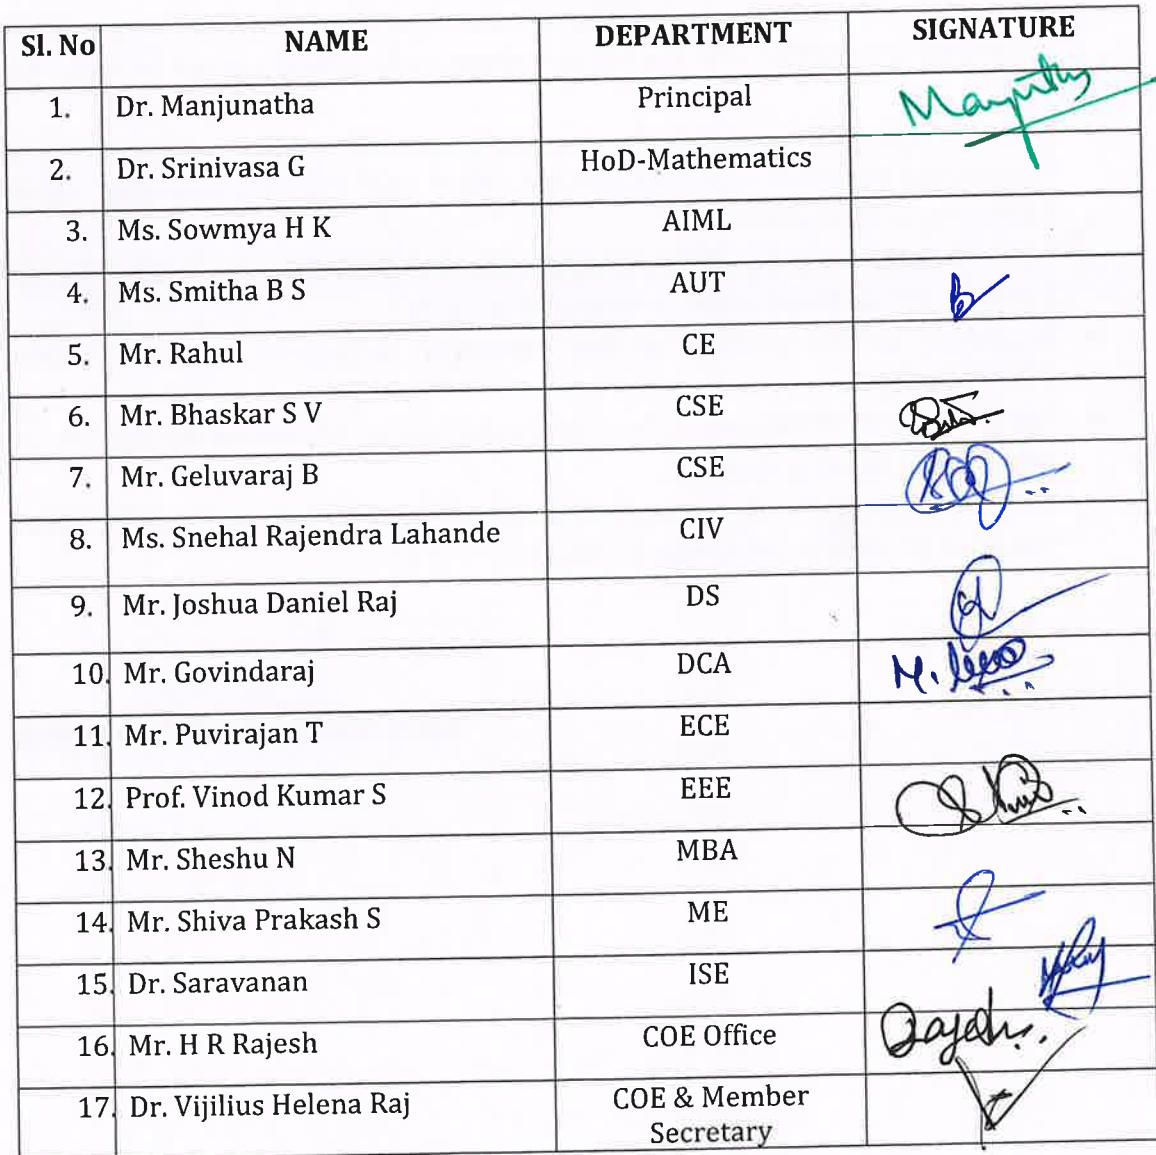 Sl. No NAME DEPARTMENT SIGNATURE
1. Dr. Manjunatha Principal
2. Dr. Srinivasa G HoD-Mathematics
3. Ms. Sowmya H K AIML
4. Ms. Smitha B S AUT
5. Mr. Rahul CE
6. Mr. Bhaskar S V CSE
7. Mr. Geluvaraj B CSE
8. Ms. Snehal Rajendra Lahande CIV
9. Mr. Joshua Daniel Raj DS
10. Mr. Govindaraj DCA
11. Mr. Puvirajan T ECE
12. Prof. Vinod Kumar S EEE
13. Mr. Sheshu N MBA
14. Mr. Shiva Prakash S ME
15. Dr. Saravanan ISE
16. Mr. H R Rajesh COE Office
17. Dr. Vijilius Helena Raj COE & Member
Secretary